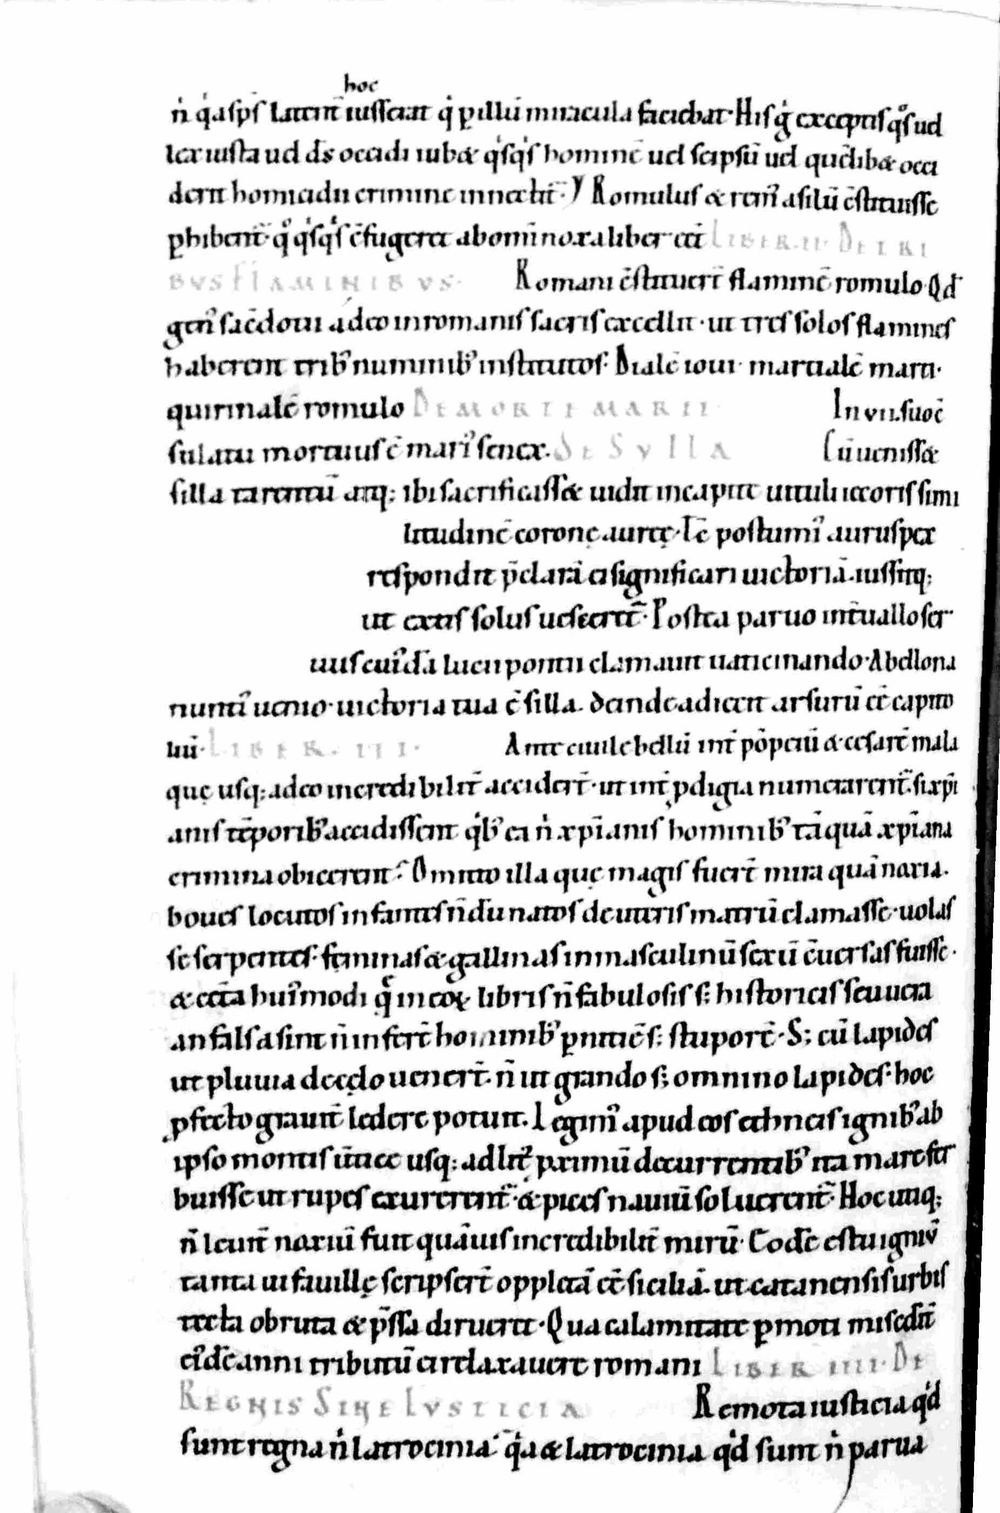 hoc
n̄ q̇a sp̄s latent̄ iussent qͥ ꝑ illū miracula faciebat. His g̊ exceptis qͦs uel
lex iusta uel ds̄ occidi iubet qͥsqͥs hominē uel seipsū uel quēlibet occi
derit homicidii crimine innectit̄. Romulus et rem᾽ asilū c̄stituisse
ꝑhibent̄. qͦ qͥsqͥs c̄fugeret ab omni noxa liber eēt LIBER. II. DE TRI
BUS FLAMINIBUS. Romani c̄stituert̄ flaminē romulo. Qd̄
gen᾽ sac̄dotii adeo in romanis sacris excellit. ut tres solos flamines
haberent trib᾽ numinib᾽ institutos. Dialē ioui. martialē marti.
quirinalē romulo DE MORTE MARII In vii. suo c̄
sulatu mortuus ē mari᾽ senex. DE SYLLA Cū uenisset
silla tarentū atq; ibi sacrificasset uidit in capite uituli iecoris simi
litudinē coronę aureę. Tc̄ postumi᾽ auruspex
respondit p̄clarā ei significari uictoriā. iussitq;
ut extis solus uesceret̄. Postea paruo int̄uallo ser
uus cui᾽dā lucii pontii clamauit uaticinando. A bellona
nunti᾽ uenio. uictoria tua ē silla. deinde adiecit arsurū eē capito
liū. LIBER. III. Ante ciuile bellū int̄ pōpeiū et cesarē mala
quę usq; adeo incredibilit̄ accidert̄. ut int̄ ꝓdigia numerarent̄. si xp̄i
anis tēporib᾽ accidissent qͥb᾽ ea n̄ xp̄ianis hominib᾽ tāquā xp̄iana
crimina obicerent? Omitto illa quę magis fuert̄ mira quā naxia.
boues locutos infantes n̄dū natos de uteris matrū clamasse. uolas
se serpentes. feminas et gallinas in masculinū sexū c̄uersas fuisse.
et cet̄a hui᾽modi qͥ in eoꝝ libris n̄ fabulosis s; historicis seu uera
an falsa sint n̄ infert̄ hominib᾽ ꝑnitiē s; stuporē. S; cū lapides
ut pluuia de cęlo uenert̄. n̄ ut grando s; omnino lapides. hoc
ꝓfecto grauit̄ ledere potuit. Legim᾽ apud eos ethneis ignib᾽ ab
ipso montis ūtice usq; ad lit᾽ ꝓximū decurrentib᾽ ita mare fer
buisse ut rupes exurerent̄. et pices nauiū soluerent̄. Hoc utiq;
n̄ leuit̄ naxiū fuit quāuis incredibilit̄ mirū. Eodē estu igniū
tanta ui fauillę scripsert̄ oppletā eē siciliā. ut catanensis urbis
tecta obruta et p̄ssa dirueret. Qua calamitate ꝑmoti misedit̄
ei᾽dē anni tributū ei relaxauere romani LIBER IIII. DE
REGNIS SINE IUSTICIA Remota iusticia qͥd
sunt regna n̄ latrocinia. qͥa et latrocinia qͥd sunt n̄ parua